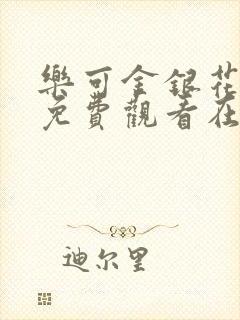 樂可金銀花
免費觀看在
迪尔里